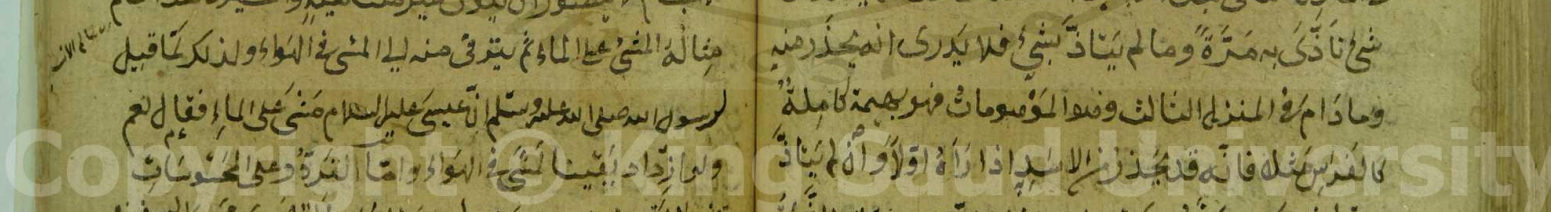 شئ تأذى به مرة وما لم يتأذ بشئ فلا يدرى انه يحذر منه
وما دام فى المنزلة الثالث وهو الموهومات فهو بهيمة كاملة
كالفرس مثلا فانه قد يحذر من الاسد اذا رآه اولا وان لم يتأذ
مثاله المشى على الماء ثم يترقى منه الى المشى فى الهواء ولذلك لما قيل
لرسول الله صلى الله عليه وسلم ان عيسى عليه السلام مشى على الماء فقال نعم
ولو ازداد يقينا لمشى فى الهواء واما التردد على المحسوسات
Copyright © King Saud University